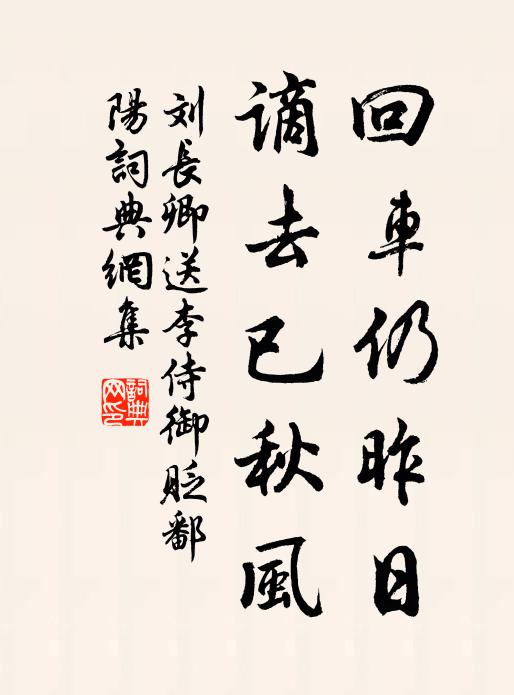 回車仍昨日
謫去已秋風
刘長卿送李侍御貶鄱
陽詞典網集
詞典
网印